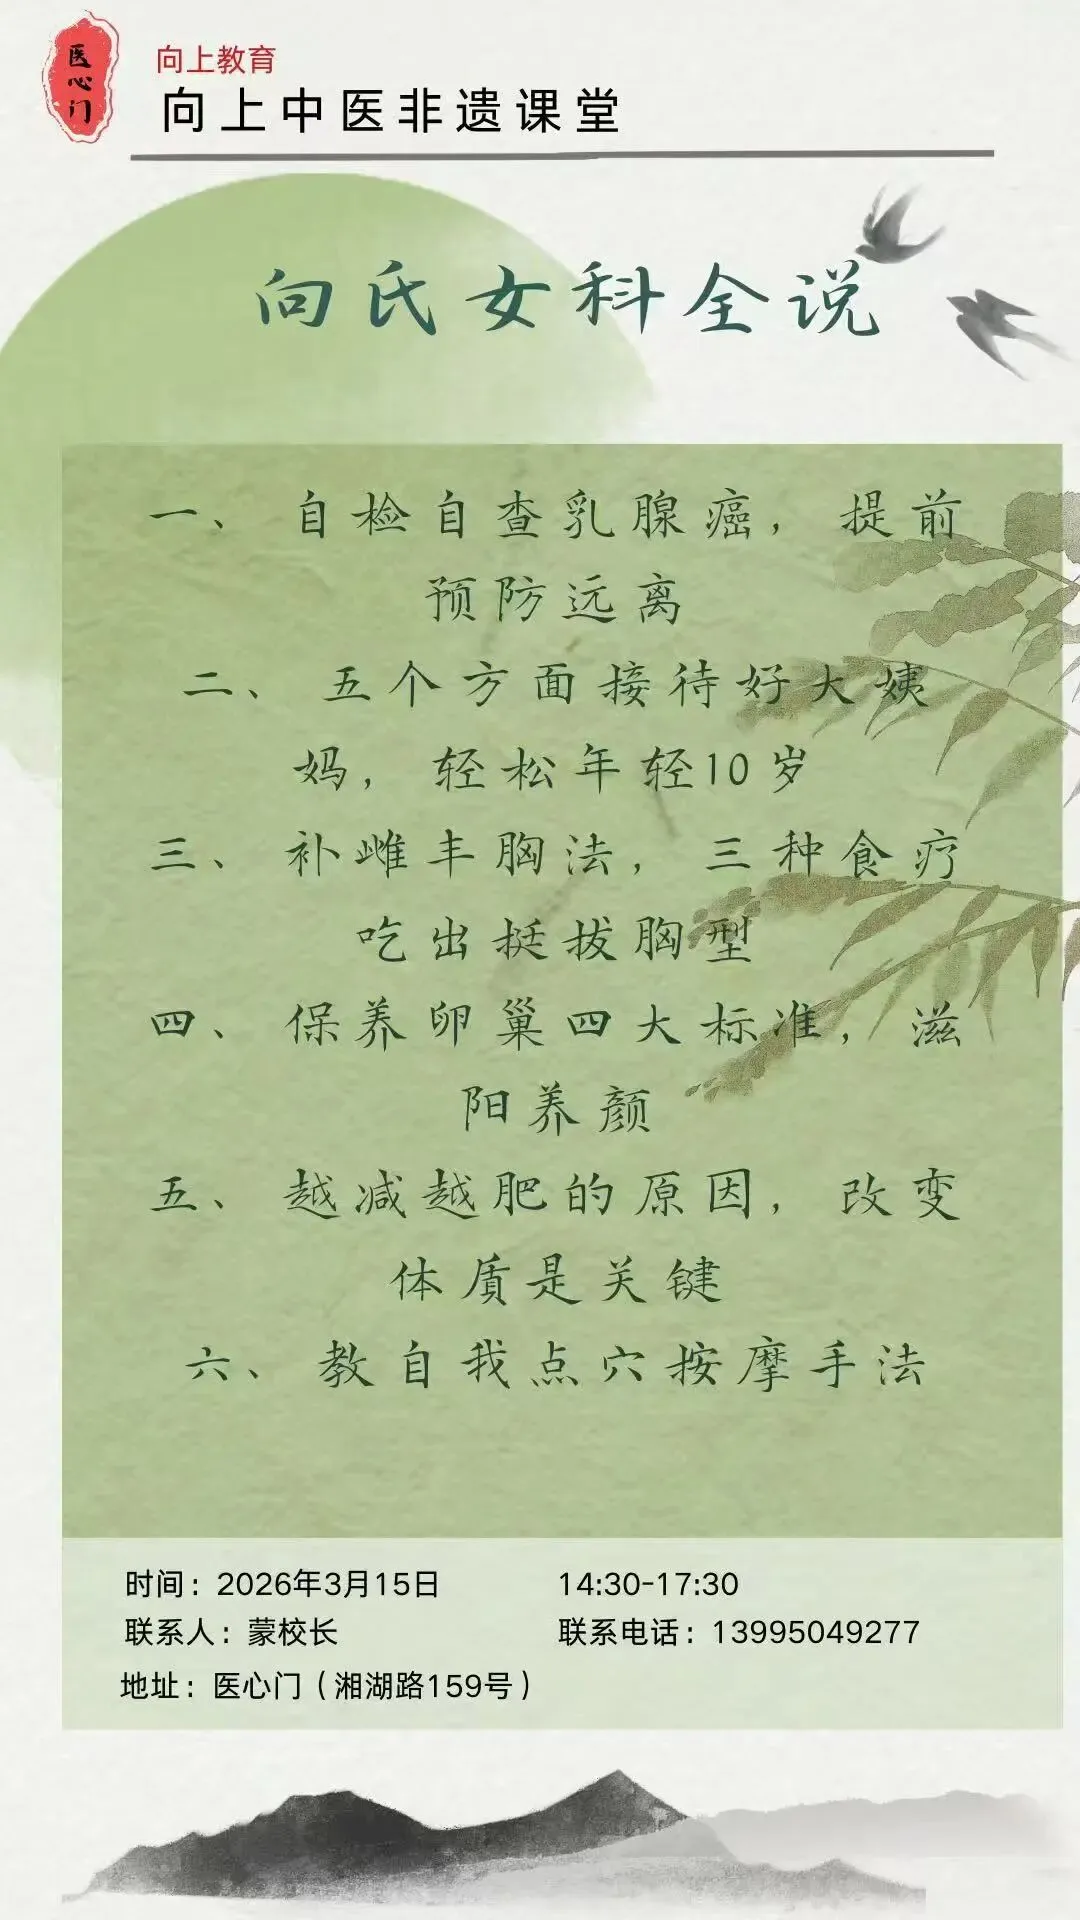 医心门
向上教育
向上中医非遗课堂
向氏女科全说
一、自检自查乳腺癌，提前
预防远离
二、五个方面接待好大姨
妈，轻松年轻10岁
三、补雌丰胸法，三种食疗
吃出挺拔胸型
四、保养卵巢四大标准，滋
阳养颜
五、越减越肥的原因，改变
体质是关键
六、教自我点穴按摩手法
时间：2026年3月15日 14:30-17:30
联系人：蒙校长 联系电话：13995049277
地址：医心门（湘湖路159号）